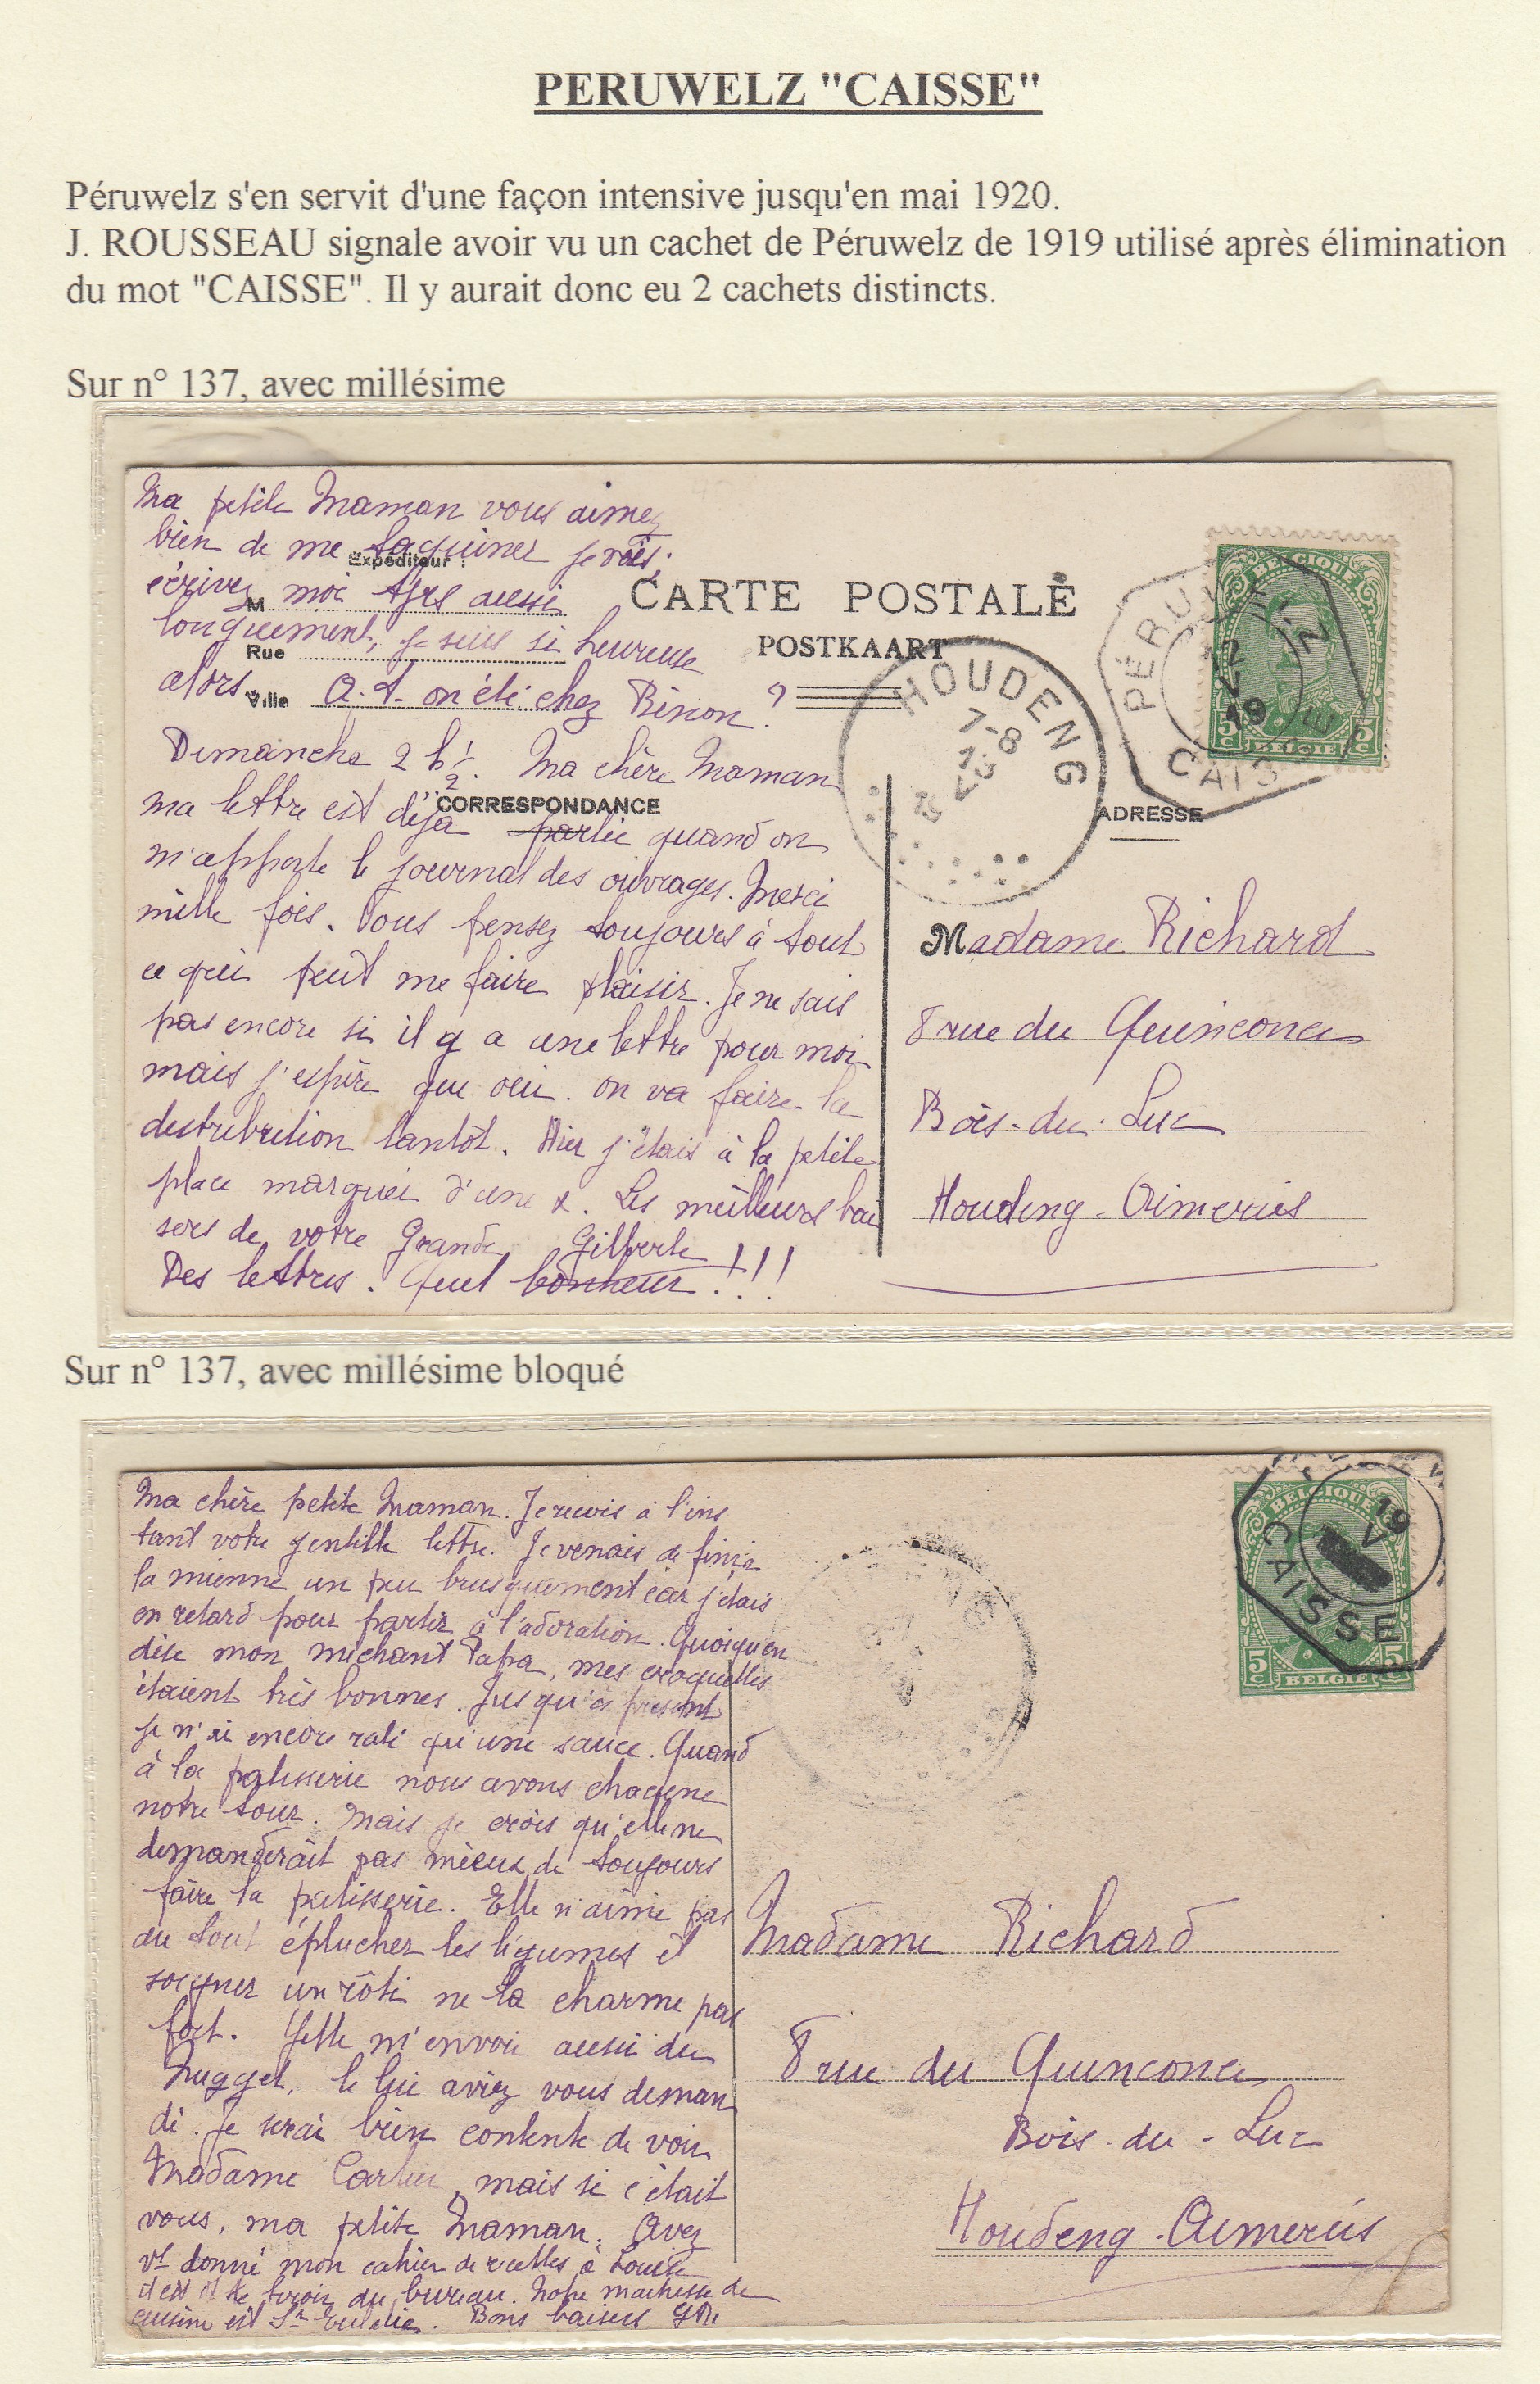 PERUWELZ "CAISSE"
Péruwelz s'en servit d'une façon intensive jusqu'en mai 1920.
J. ROUSSEAU signale avoir vu un cachet de Péruwelz de 1919 utilisé après élimination
du mot "CAISSE". Il y aurait donc eu 2 cachets distincts.
Sur n° 137, avec millésime
Ma petite Maman vous aimez
bien de me taquiner je vois,
Expéditeur :
écrivez moi très aussi
M
longuement, je suis si heureuse
Rue
alors. A-t-on été chez Binon ?
Ville
Dimanche 2 h 1/2. Ma chère Maman
ma lettre est déjà partie quand on
CORRESPONDANCE
m'apporte le journal des ouvrages. Merci
mille fois. Vous pensez toujours à tout
ce qui peut me faire plaisir. Je ne sais
pas encore si il y a une lettre pour moi
mais j'espère que oui. on va faire la
distribution tantôt. Hier j'étais à la petite
place marquée d'une x. Les meilleurs bai
sers de votre Grande Gilberte
Des lettres. Quel bonheur !!!
CARTE POSTALE
POSTKAART
HOUDENG
7-8
13
V
PÉRUWELZ
12
V
19
CAISSE
BELGIQUE
5c 5c
BELGIE
ADRESSE
Madame Richard
8 rue du Quinconce
Bois-du-Luc
Houdeng-Aimeries
Sur n° 137, avec millésime bloqué
Ma chère petite Maman. Je reçois à l'ins
tant votre gentille lettre. Je venais de finir
la mienne un peu brusquement car j'étais
en retard pour partir à l'adoration. Quoiqu'en
dise mon méchant Papa, mes croquettes
étaient très bonnes. Jusqu'à présent
je n'ai encore raté qu'une sauce. Quand
à la patisserie nous avons chacune
notre tour. Mais je crois qu'elle ne
demanderait pas mieux de toujours
faire la patisserie. Elle n'aime pas
du tout éplucher les légumes et
soigner un rôti ne la charme pas
fort. Yette m'envoie aussi du
Nugget, le lui aviez vous deman
dé. Je serai bien contente de voir
Madame mais si c'était
vous, ma petite Maman. Avez
vs donné mon cahier de recettes à Louise
il est ds le tiroir du bureau. Notre maîtresse de
cuisine est Sr. Bons baisers Gte
BELGIQUE
19
V
CAISSE
5c 5c
BELGIE
Madame Richard
8 rue du Quinconce
Bois-du-Luc
Houdeng-Aimeries